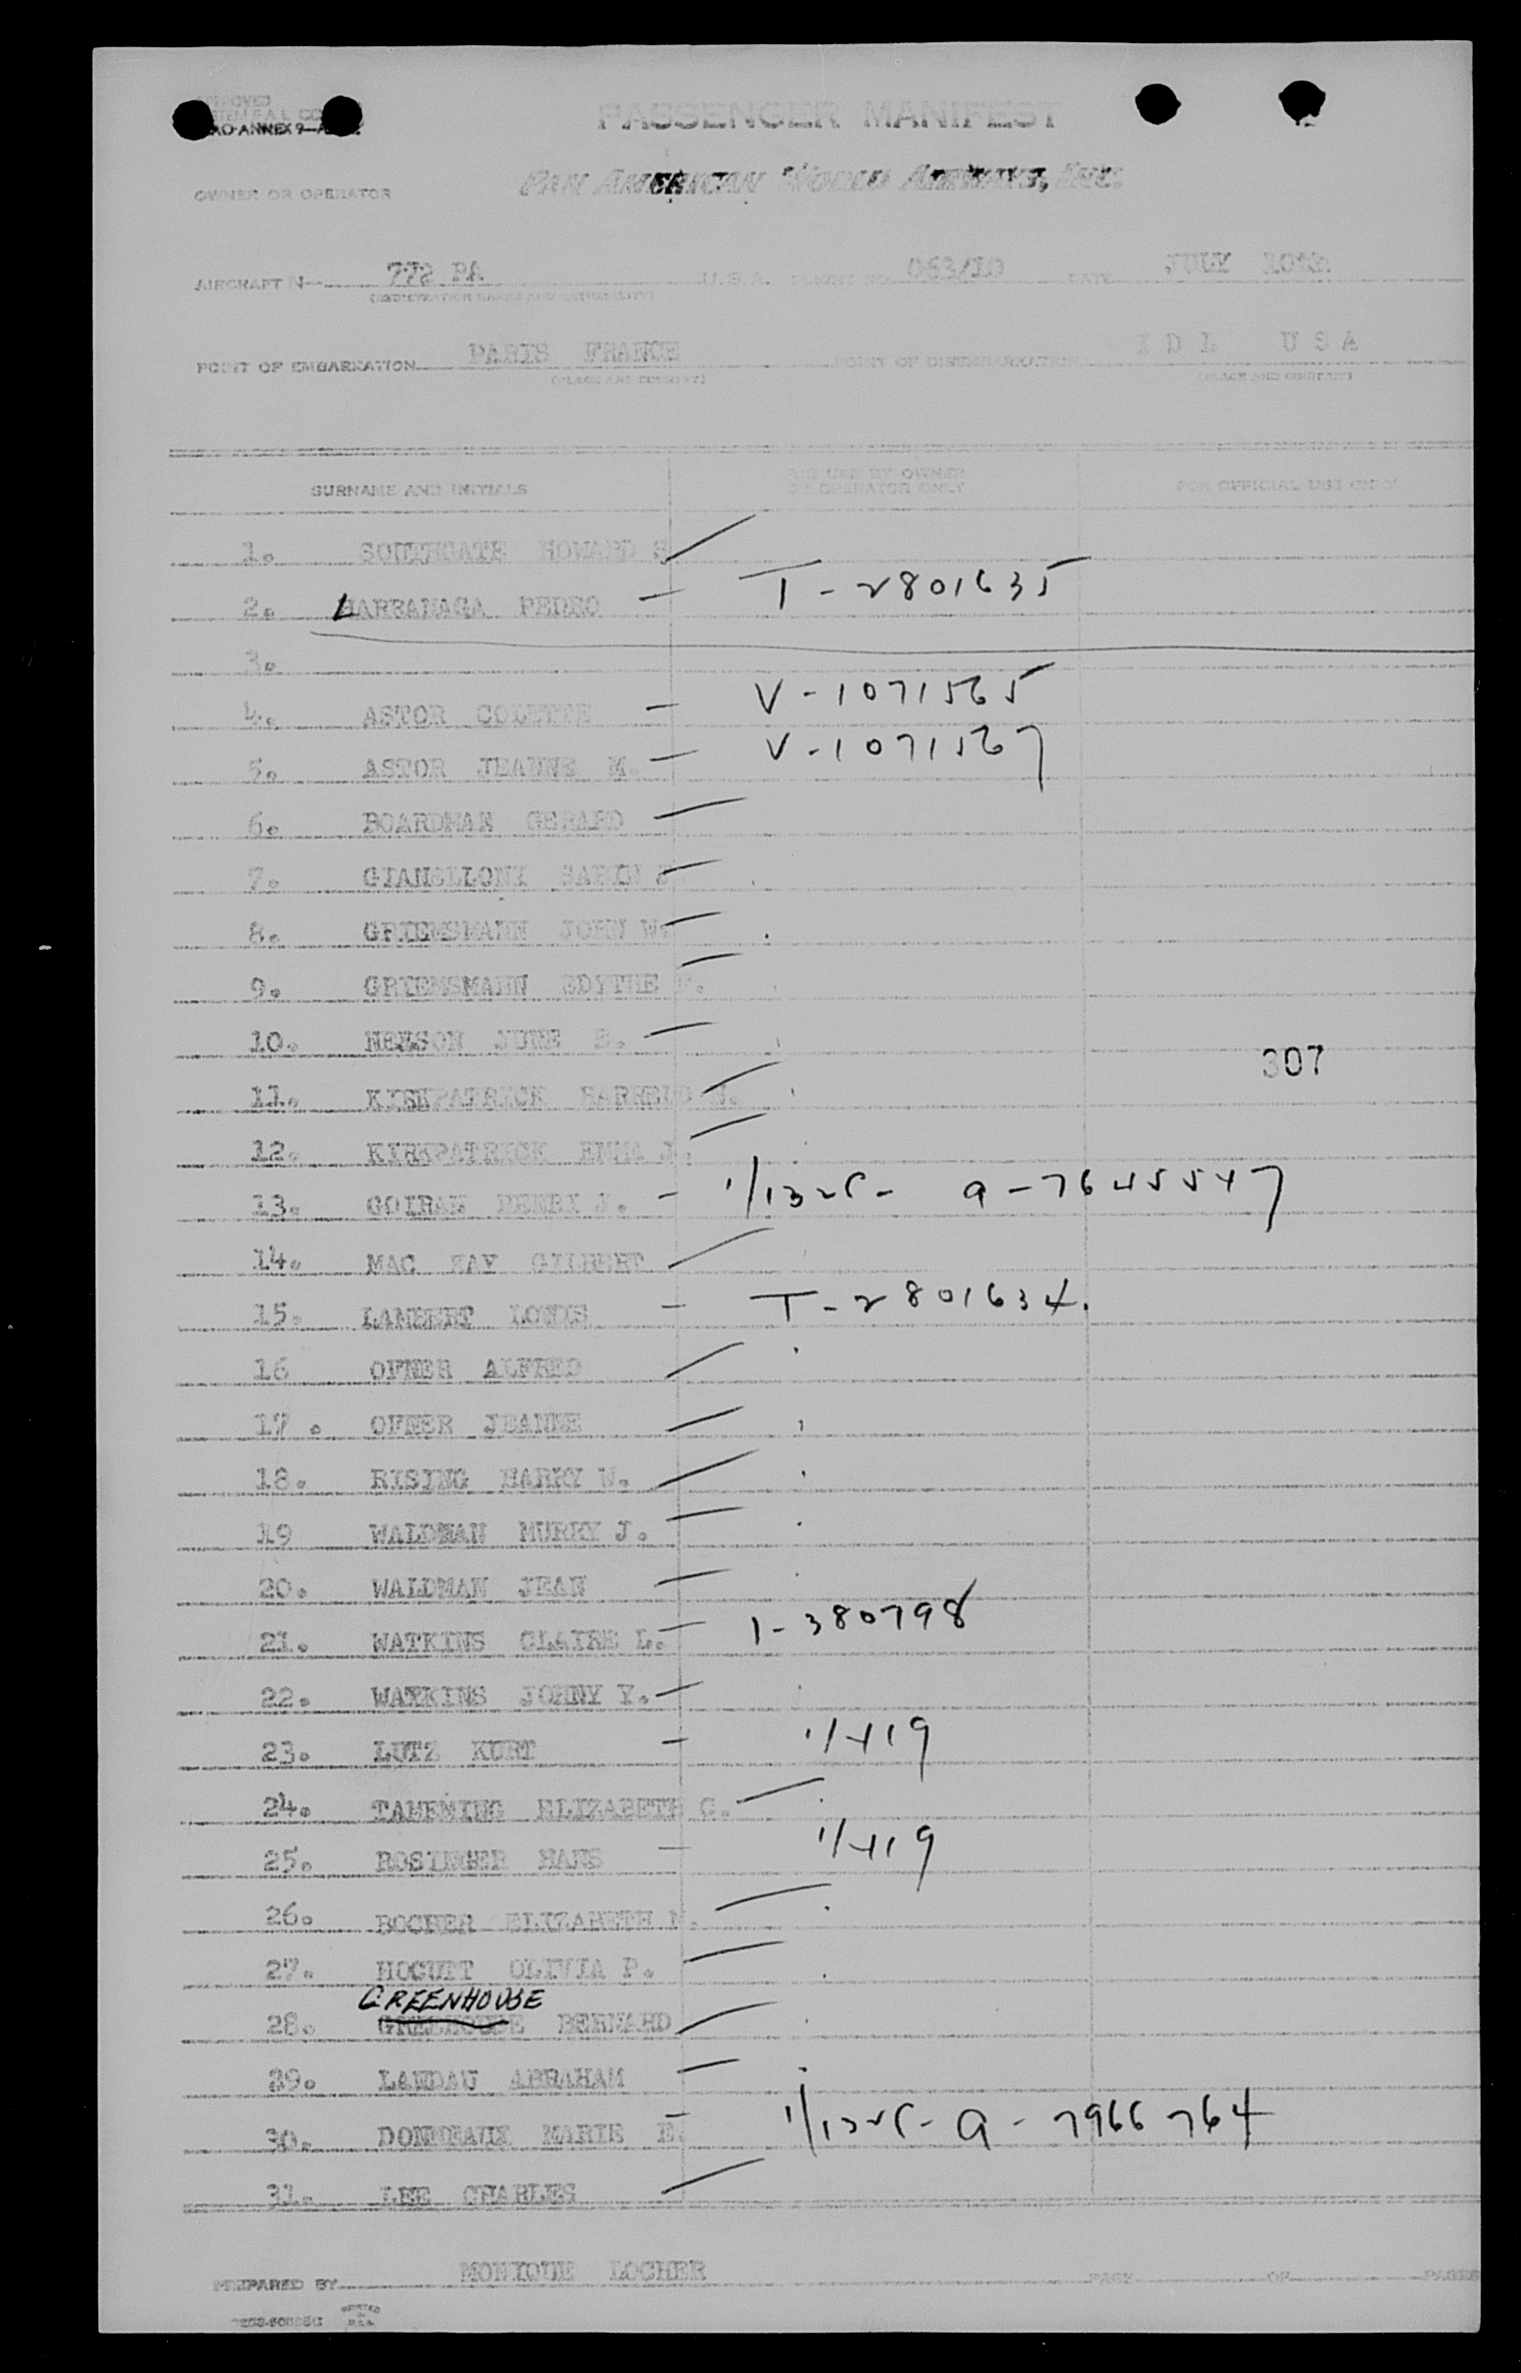 APPROVED
ICAO ANNEX 9
PASSENGER MANIFEST
OWNER OR OPERATOR PAN AMERICAN WORLD AIRWAYS, INC.
AIRCRAFT N— 772 PA U.S.A. FLIGHT NO. 063/10 DATE JULY 10TH
(REGISTRATION MARKS AND NATIONALITY)
POINT OF EMBARKATION PARIS FRANCE POINT OF DISEMBARKATION I D L U S A
(PLACE AND COUNTRY) (PLACE AND COUNTRY)
SURNAME AND INITIALS FOR USE BY OWNER OR OPERATOR ONLY FOR OFFICIAL USE ONLY
1. SOUTHGATE HOWARD S
2. LARRANAGA PEDRO - T-2801635
3.
4. ASTOR COLETTE - V-1071565
5. ASTOR JEANNE M. - V-1071567
6. BOARDMAN GERARD
7. GIANELLONI
8. GRIEMSMANN JOHN W.
9. GRIEMSMANN EDYTHE
10. JUNE
307
11. KIRKPATRICK
12. KIRKPATRICK EMMA J.
13. GOIRAN HENRI J. - a-7645547
14. MAC KAY GILBERT
15. LAMBERT LOUIS - T-2801634.
16 OFNER ALFRED
17. OFNER JEANNE
18. RISING HARRY N.
19 WALDMAN MURRY J.
20. WALDMAN JEAN
21. WATKINS CLAIRE L. - 1-380798
22. WATKINS JOHNY Y.
23. LUTZ KURT - 1/419
24. ELIZABETH G.
25. ROSINGER HANS - 1/419
26. BOCHER ELIZABETH
27. HOCUTT OLIVIA P.
GREENHOUSE
28. BERNARD
29. LANDAU ABRAHAM
30. MARIE - a-7966764
31. LEE CHARLES
PREPARED BY MONIQUE LOCHER PAGE OF PAGES
PRINTED IN U.S.A.